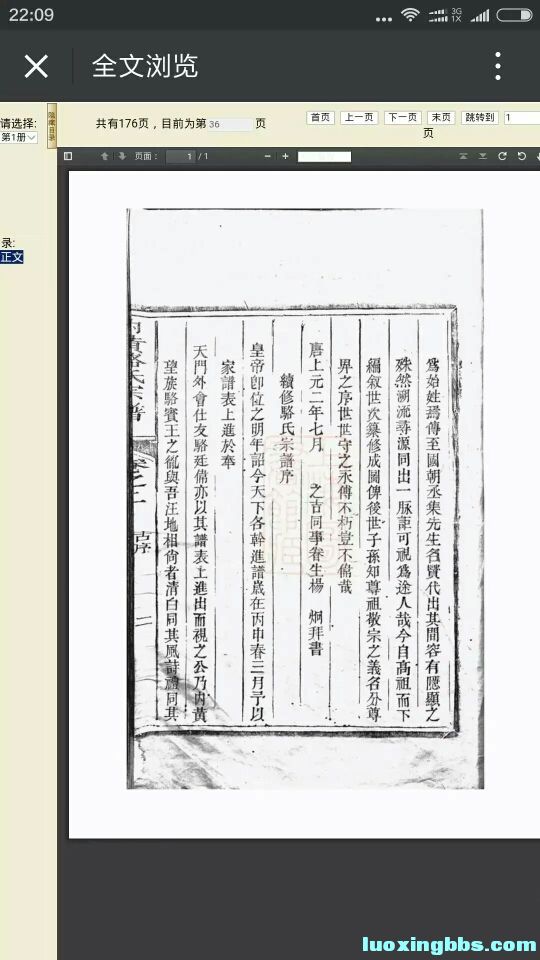 22:09
3G
1X
全文浏览
请选择:
第1册
隐藏目录
共有176页，目前为第 36 页
首页 上一页 下一页 末页 跳转到 1
页
页面： 1 / 1
录:
正文
為始姓焉傳至國朝丞集先生名賢代出其間容有隱顯之
殊然溯流尋源同出一脉詎可視為途人哉今自高祖而下
編敘世次纂修成圖俾後世子孫知尊祖敬宗之義名分尊
畀之序世世守之永傳不朽豈不偹哉
唐上元二年七月 之吉同事眷生楊 炯拜書
續修駱氏宗譜序
皇帝卽位之明年詔今天下各幹進譜歲在丙申春三月予以
家譜表上進於奉
天門外會仕友駱廷偹亦以其譜表上進出而視之公乃內黃
望族駱賓王之裔與吾汪地相尙者清白同其風詩禮同其
內黃駱氏宗譜
卷之二
古序
二
luoxingbbs.com